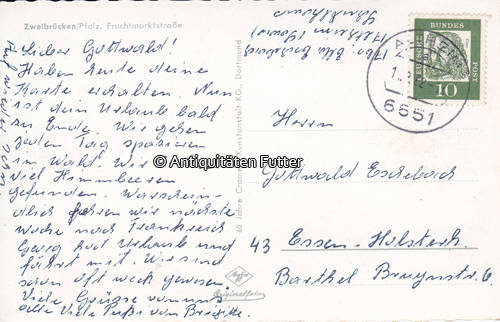 Zweibrücken/Pfalz. Fruchtmarktstraße
Lieber Gottwald!
Haben heute deine
Karte erhalten. Nun
ist dein Urlaub bald
zu Ende. Wir gehen
jeden Tag spazieren
im Wald. Wir
viel Himmbeeren
gefunden. Warschein-
dlich fahren wir nächste
woche nach Frankreich
Georg hat Urlaub und
fährt mit. Wir sind
schon oft weck gewesen.
Viele Grüsse von uns
alle Viele Pußi von Brigitte.
© Antiquitäten Futter
60 Jahre Cramers Kunstanstalt KG., Dortmund
Agfa
Originalfoto
DEUTSCHE
BUNDES
POST
10
6651
Herrn
Gottwald Eschebach
43 Essen-Holsterh.
Barthel Bruynstr. 6